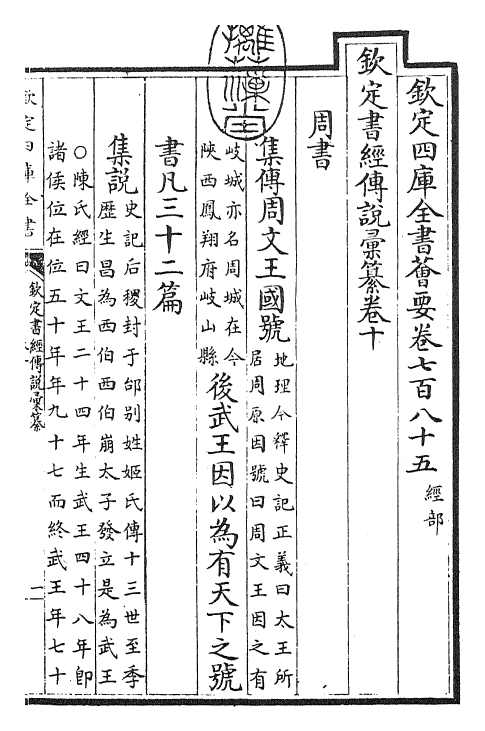 欽定四庫全書薈要卷七百八十五 經部
欽定書經傳說彙纂卷十
周書
集傳周文王國號 地理今釋史記正義曰太王所
居周原因號曰周文王因之有
岐城亦名周城在今
陝西鳳翔府岐山縣 後武王因以為有天下之號
書凡三十二篇
集說 史記后稷封于邰别姓姬氏傳十三世至季
歴生昌為西伯西伯崩太子發立是為武王
○陳氏經曰文王二十四年生武王四十八年即
諸侯位在位五十年年九十七而終武王年七十
欽定四庫全書
欽定書經傳說彙纂
一